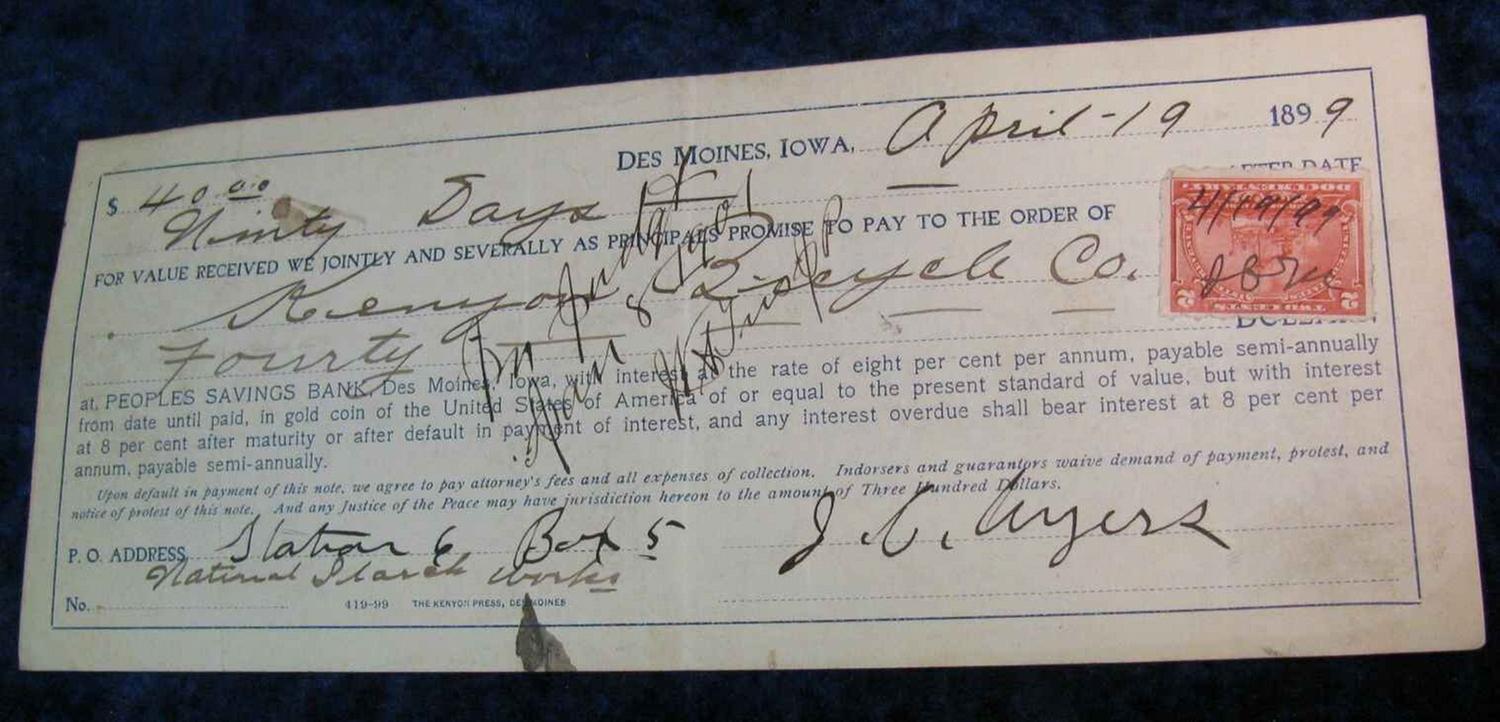 DES MOINES, IOWA, April - 19 1899
$ 40 00
Ninty Days AFTER DATE
FOR VALUE RECEIVED WE JOINTLY AND SEVERALLY AS PRINCIPALS PROMISE TO PAY TO THE ORDER OF
Kenyon Bicycle Co.
Fourty DOLLARS.
at PEOPLES SAVINGS BANK, Des Moines, Iowa, with interest at the rate of eight per cent per annum, payable semi-annually
from date until paid, in gold coin of the United States of America of or equal to the present standard of value, but with interest
at 8 per cent after maturity or after default in payment of interest, and any interest overdue shall bear interest at 8 per cent per
annum, payable semi-annually.
Upon default in payment of this note, we agree to pay attorney's fees and all expenses of collection. Indorsers and guarantors waive demand of payment, protest, and
notice of protest of this note. And any Justice of the Peace may have jurisdiction hereon to the amount of Three Hundred Dollars.
P. O. ADDRESS Station 6 Box 5 J. C. Ayers
National Starch Works
No.
419-99 THE KENYON PRESS, DES MOINES
4/19/99
DOCUMENTARY
2 TWO CENTS 2